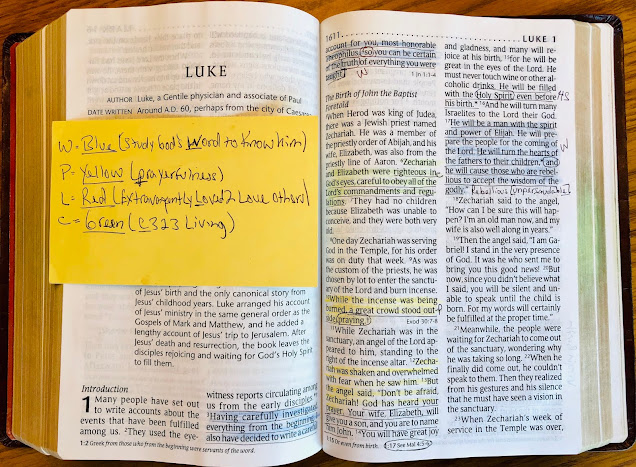 LUKE
AUTHOR Luke, a Gentile physician and associate of Paul
DATE WRITTEN Around A.D. 60, perhaps from the city of
W = Blue (study God's Word to Know him)
P = Yellow (prayerfulness)
L = Red (Extravagantly Loved 2 Love others)
C = Green (C323 Living)
Jesus' birth and the only canonical story from
Jesus' childhood years. Luke arranged his account
of Jesus' ministry in the same general order as the
Gospels of Mark and Matthew, and he added a
lengthy account of Jesus' trip to Jerusalem. After
Jesus' death and resurrection, the book leaves the
disciples rejoicing and waiting for God's Holy Spirit
to fill them.
Introduction
1 Many people have set out
to write accounts about the
events that have been fulfilled
among us. 2They used the eye-
witness reports circulating among
us from the early disciples.
3Having carefully investigated
everything from the beginning, I
also have decided to write a careful
1:2 Greek from those who from the beginning were servants of the word.
1611
LUKE 1
account for you, most honorable
Theophilus, 4so you can be certain
of the truth of everything you were
taught. W
1 Jn 1:1-4
The Birth of John the Baptist
Foretold
5When Herod was king of Judea,
there was a Jewish priest named
Zechariah. He was a member of
the priestly order of Abijah, and his
wife, Elizabeth, was also from the
priestly line of Aaron. 6Zechariah
and Elizabeth were righteous in
God's eyes, careful to obey all of the
Lord's commandments and regu-
lations. 7They had no children
because Elizabeth was unable to
conceive, and they were both very
old.
8One day Zechariah was serving
God in the Temple, for his order
was on duty that week. 9As was
the custom of the priests, he was
chosen by lot to enter the sanctu-
ary of the Lord and burn incense.
10While the incense was being
burned, a great crowd stood out- P
side, praying.
Exod 30:7-8
11While Zechariah was in the
sanctuary, an angel of the Lord ap-
peared to him, standing to the
right of the incense altar. 12Zecha-
riah was shaken and overwhelmed
with fear when he saw him. 13But
the angel said, "Don't be afraid,
Zechariah! God has heard your
prayer. Your wife, Elizabeth, will
give you a son, and you are to name
him John. 14You will have great joy
and gladness, and many will re-
joice at his birth, 15for he will be
great in the eyes of the Lord. He
must never touch wine or other al-
coholic drinks. He will be filled
with the Holy Spirit, even before HS
his birth.* 16And he will turn many
Israelites to the Lord their God.
17He will be a man with the spirit
and power of Elijah. He will pre-
pare the people for the coming of W
the Lord. He will turn the hearts of
the fathers to their children,* and
he will cause those who are rebel-
lious to accept the wisdom of the
godly." Rebellious [unpersuadable]
18Zechariah said to the angel,
"How can I be sure this will hap-
pen? I'm an old man now, and my
wife is also well along in years."
19Then the angel said, "I am Ga-
briel! I stand in the very presence
of God. It was he who sent me to
bring you this good news! 20But
now, since you didn't believe what
I said, you will be silent and un-
able to speak until the child is
born. For my words will certainly
be fulfilled at the proper time."
21Meanwhile, the people were
waiting for Zechariah to come out
of the sanctuary, wondering why
he was taking so long. 22When he
finally did come out, he couldn't
speak to them. Then they realized
from his gestures and his silence
that he must have seen a vision in
the sanctuary.
23When Zechariah's week of
service in the Temple was over,
1:15 Or even from birth. 1:17 See Mal 4:5-6